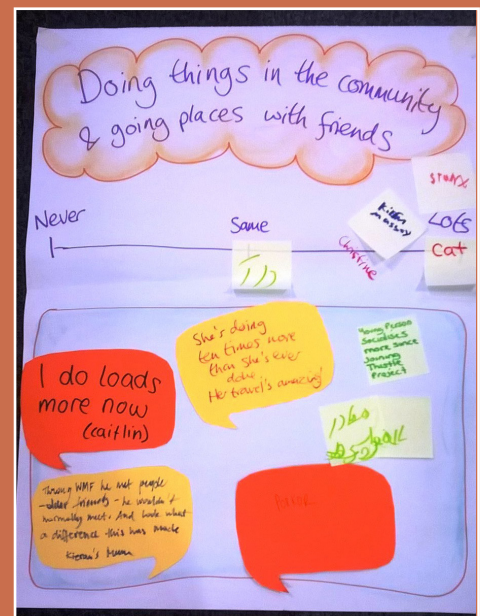 Doing things in the community
& going places with friends
Never
Same
LOTS
Christine
Cat
I do loads
more now
(caitlin)
She's doing
ten times more
than she's ever
done.
Her travel's amazing!
Young Person
Socialises
more since
Joining
Thistle
Project
Through WMF he met people
- older friends - he wouldn't
normally meet. And look what
a difference this has made
Kieran's Mum